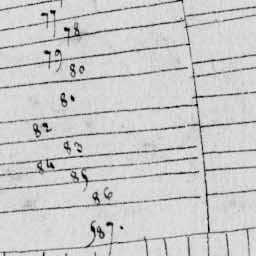 77
78
79
80
80
82
83
84
85
86
587.